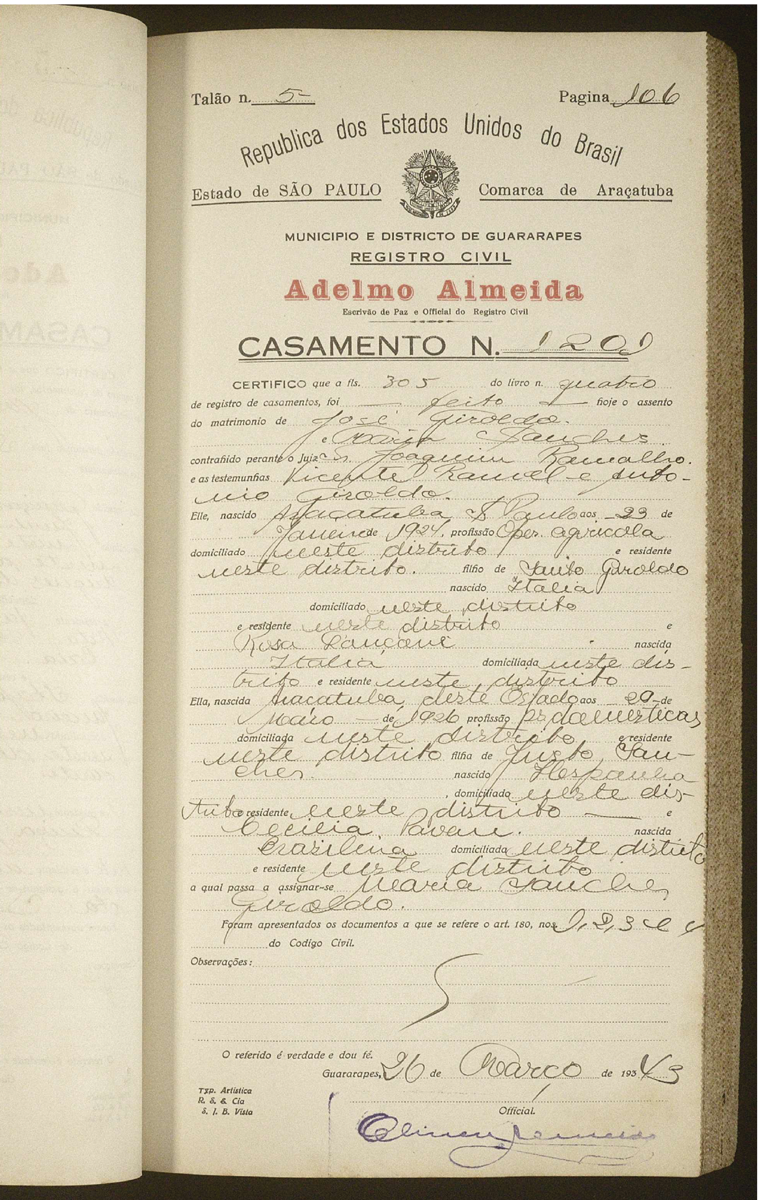 Talão n. 5 Pagina 106
Republica dos Estados Unidos do Brasil
Estado de SÃO PAULO Comarca de Araçatuba
MUNICIPIO E DISTRICTO DE GUARARAPES
REGISTRO CIVIL
Adelmo Almeida
Escrivão de Paz e Official do Registro Civil
CASAMENTO N. 1201
CERTIFICO que a fls. 305 do livro n. quatro
de registro de casamentos, foi feito hoje o assento
do matrimonio de José Giroldo.
e Maria Sanches
contrahido perante o Juiz Sr. Joaquim Ramalho.
e as testemunhas Vicente e Anto-
nio Giroldo.
Elle, nascido Araçatuba S. Paulo aos 23 de
Janeiro de 1924. profissão Oper. agricola
domiciliado neste distrito e residente
neste distrito. filho de Santo Giroldo
nascido Italia
domiciliado neste distrito
e residente neste distrito e
Rosa nascida
Italia domiciliada neste dis-
trito e residente neste distrito
Ella, nascida Araçatuba, deste Estado aos 20 de
de 1926 profissão Ps. domesticas
domiciliada neste distrito e residente
neste distrito filha de Justo San-
ches. nascido Hespanha
domiciliado neste dis-
trito e residente neste distrito e
Cecilia Pavan. nascida
Brazileira domiciliada neste distrito
e residente neste distrito
a qual passa a assignar-se Maria Sanches
Giroldo.
Foram apresentados os documentos a que se refere o art. 180, nos. 1, 2, 3 e 4
do Codigo Civil.
Observações:
O referido é verdade e dou fé.
Guararapes, 26 de Março de 1943
Typ. Artistica
R. S. & Cia
S. J. B. Vista
Official.